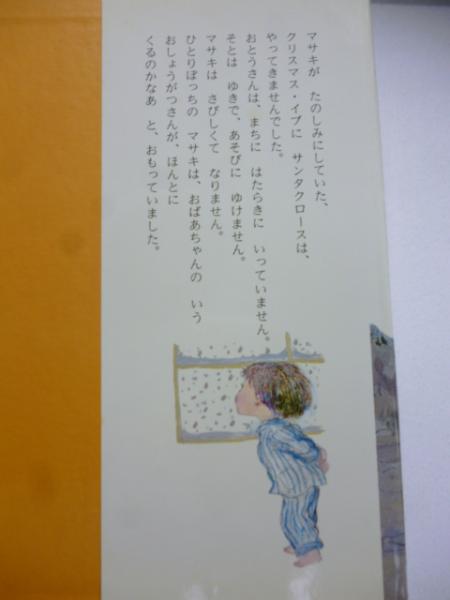 マサキが　たのしみにしていた、
クリスマス・イブに　サンタクロースは、
やってきませんでした。
おとうさんは、まちに　はたらきに　いっていません。
そとは　ゆきで、あそびに　ゆけません。
マサキは　さびしくて　なりません。
ひとりぼっちの　マサキは、おばあちゃんの　いう
おしょうがつさんが、ほんとに
くるのかなあ　と、おもっていました。